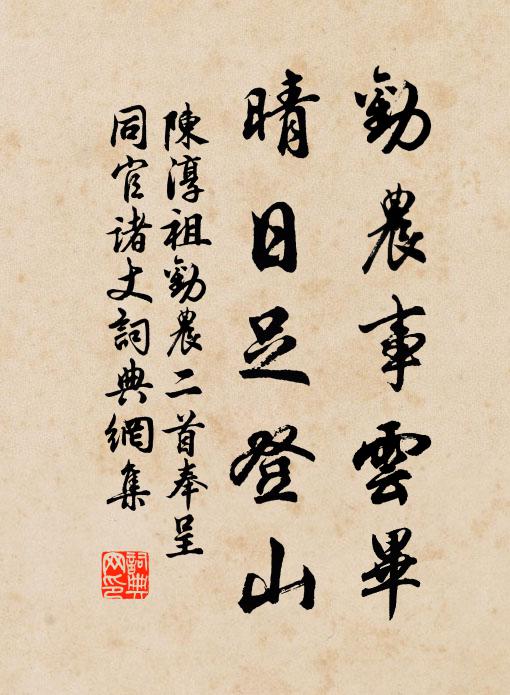 勸農事雲畢
晴日足登山
陳淳祖勸農二首奉呈
同官諸丈詞典網集
詞典网印